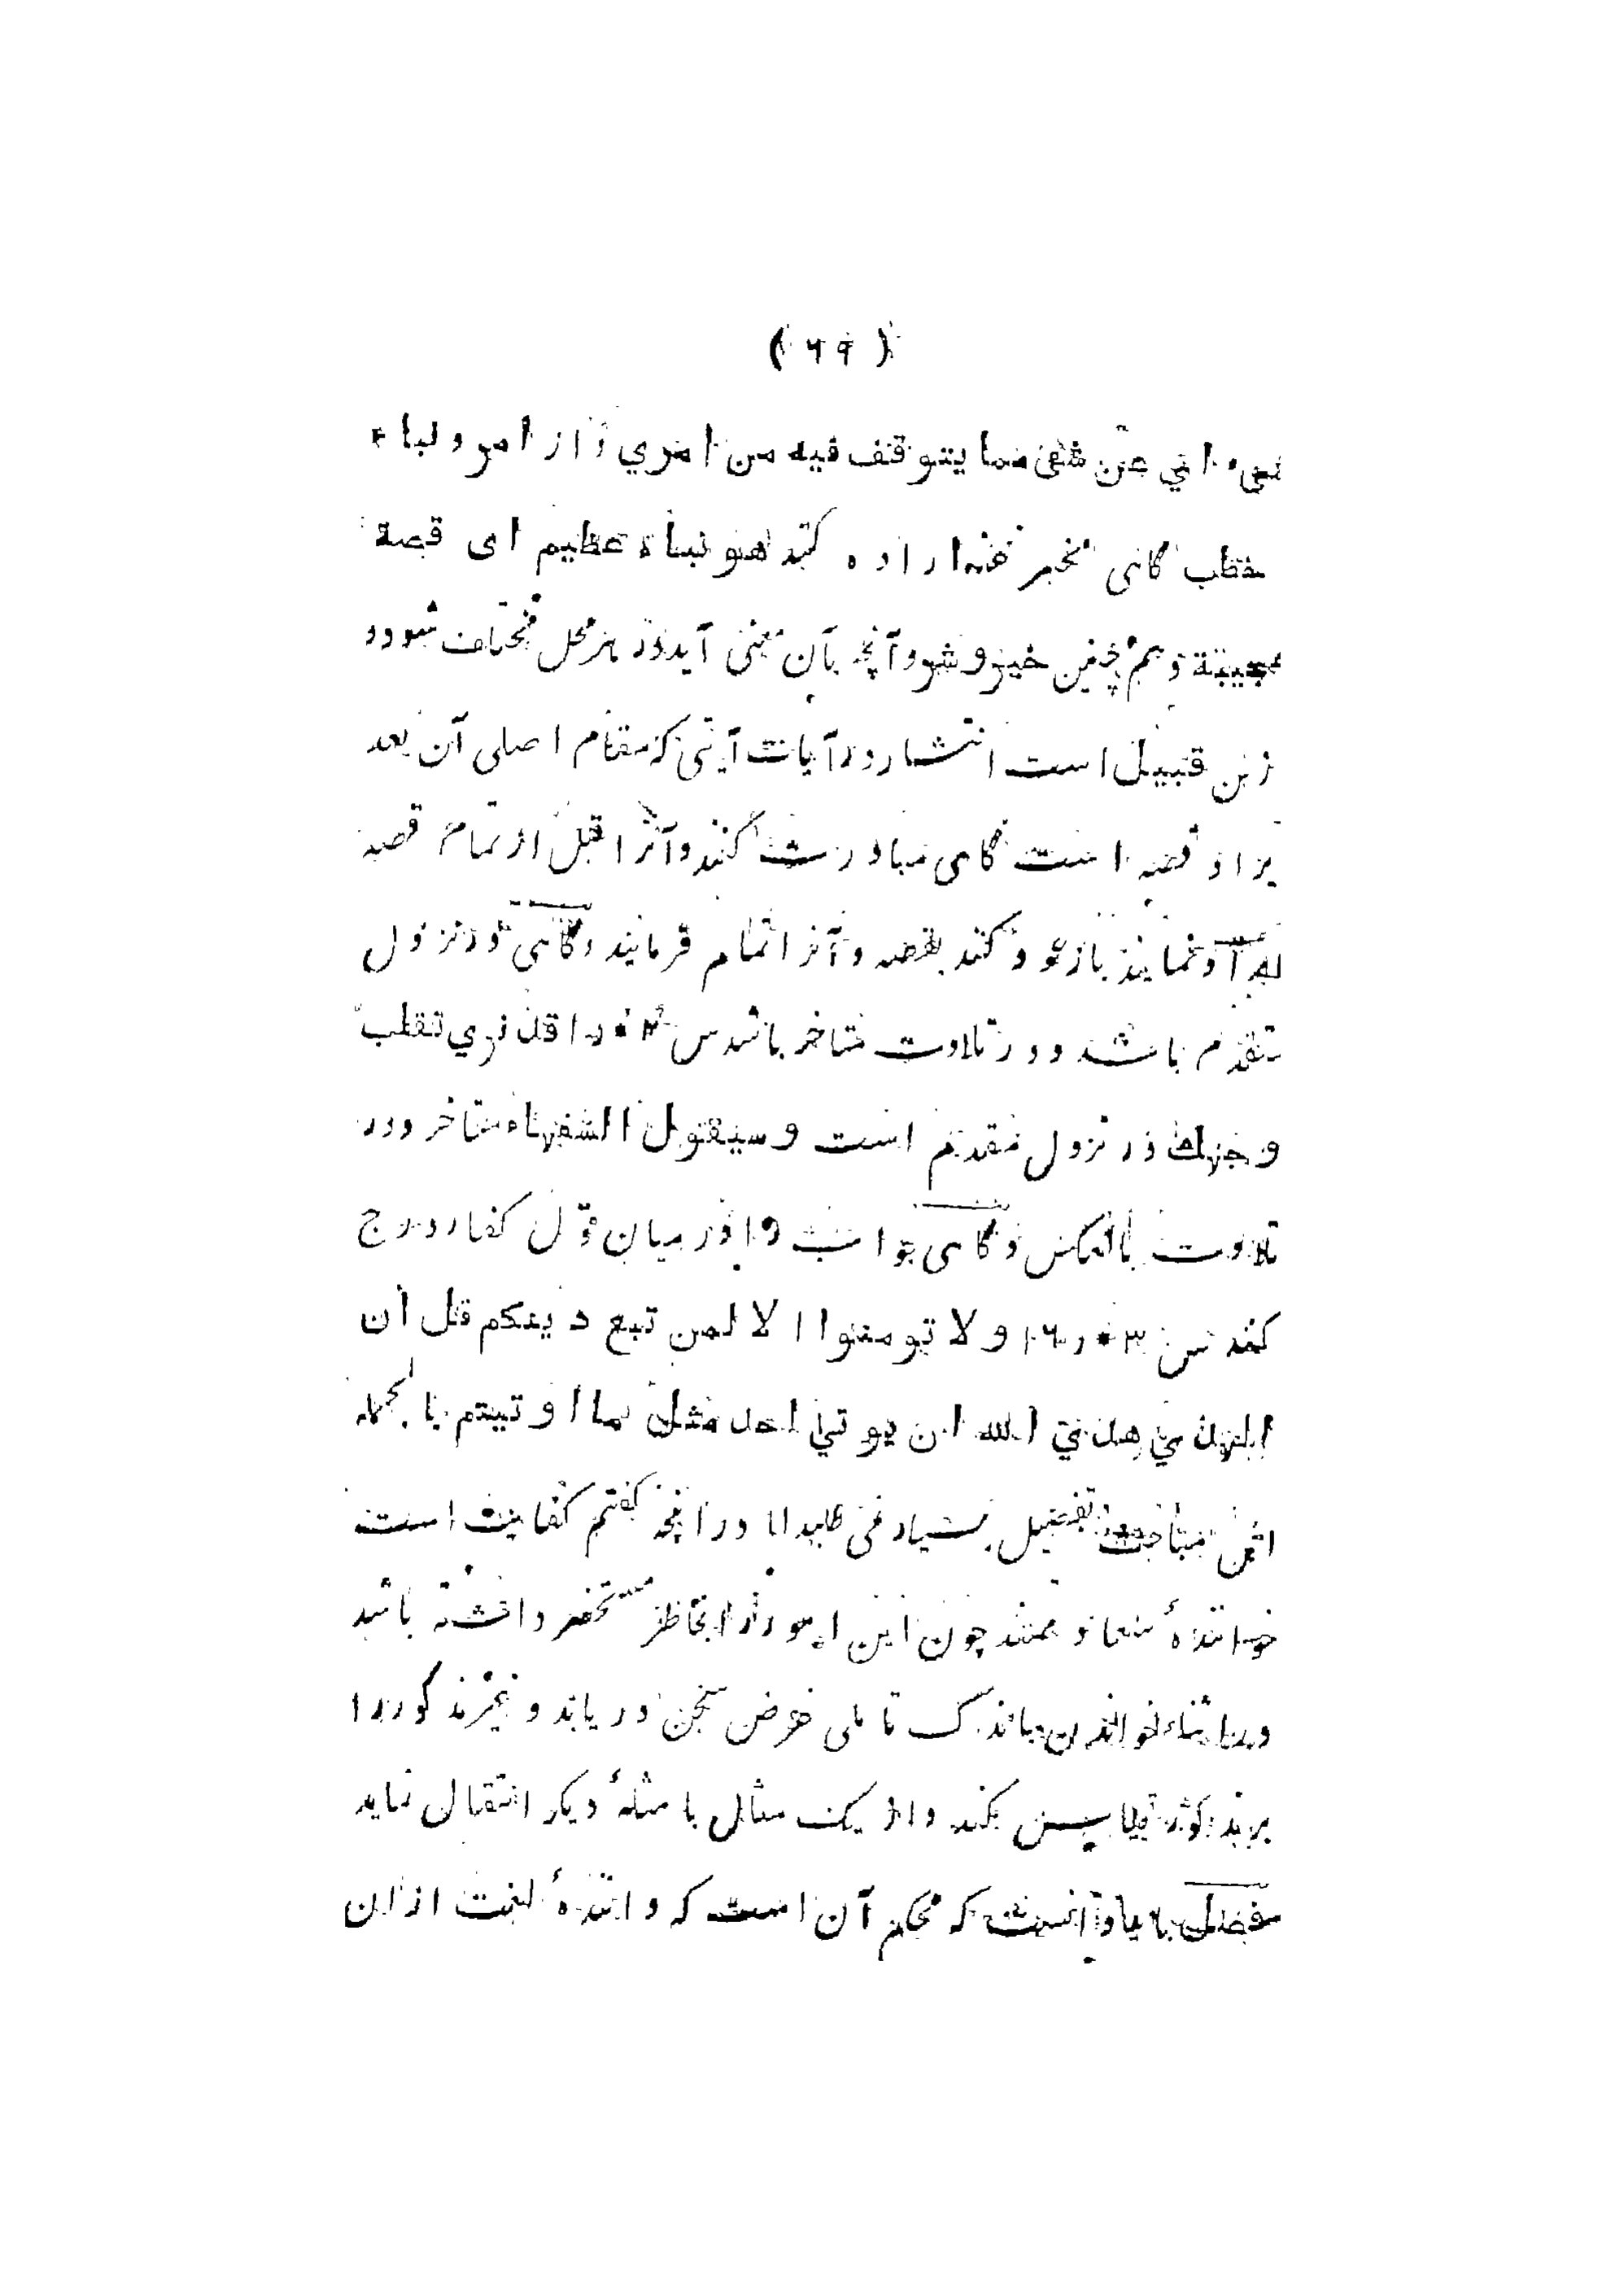 ( ٦٩ )
شیء ای عن شیء مما یتوقف فیه من امری و از امر و نباء
خطب گاهی مخبر عنه اراده کنند هو نباء عظیم ای قصة
عجیبة و هم چنین خیر و شر و آنچه بآن معنی آید در هر محل مختلف شود و
زین قبیل است انتشار در آیات آیتی که مقام اصلی آن بعد
یراد قصه است گاهی مبادرت کنند و آنرا قبل از تمام قصه
نمایند باز عود کنند بقصه و آنرا تمام فرمایند و گاهی در نزول
متقدم باشد و در تلاوت متاخر باشد س قد نری تقلب
وجهك در نزول مقدم است و سیقول السفهاء متاخر و در
تلاوت بالعکس و گاهی جواب را در میان قول کفار درج
کنند س ٣ ر ١٦ و لا تومنوا الا لمن تبع دینکم قل ان
الهدی هدی الله ان یوتی احد مثل ما اوتیتم بالجمله
این مباحث تفصیل بسیار می طلبد اما در آنچه گفتم کفایت است
خوانندهٔ سعادتمند چون این امور را بخاطر مستحضر داشته باشد
در اثناء خواندن باندک تاملی غرض سخن دریابد و غیر مذکور را
بر مذکور قیاس بکند و از یک مثال بامثلهٔ دیگر انتقال نماید
فصل باید دانست که محکم آن است که دانندهٔ لغت از ان